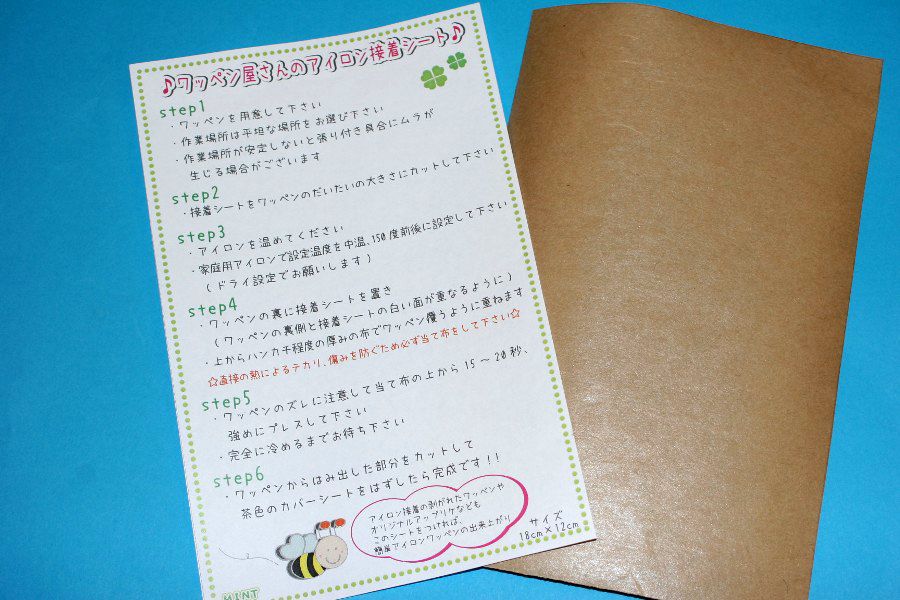 ♪ワッペン屋さんのアイロン接着シート♪
step1
・ワッペンを用意して下さい
・作業場所は平坦な場所をお選び下さい
・作業場所が安定しないと張り付き具合にムラが
生じる場合がございます
step2
・接着シートをワッペンのだいたいの大きさにカットして下さい
step3
・アイロンを温めてください
・家庭用アイロンで設定温度を中温、150度前後に設定して下さい
(ドライ設定でお願いします)
step4
・ワッペンの裏に接着シートを置き
(ワッペンの裏側と接着シートの白い面が重なるように)
・上からハンカチ程度の厚みの布でワッペン覆うように重ねます
☆直接の熱によるテカリ、傷みを防ぐため必ず当て布をして下さい☆
step5
・ワッペンのズレに注意して当て布の上から15～20秒、
強めにプレスして下さい
・完全に冷めるまでお待ち下さい
step6
・ワッペンからはみ出した部分をカットして
茶色のカバーシートをはずしたら完成です!!
アイロン接着の剥がれたワッペンや
オリジナルアップリケなども
このシートをつければ、
簡単アイロンワッペンの出来上がり
サイズ
18cm×12cm
MINT